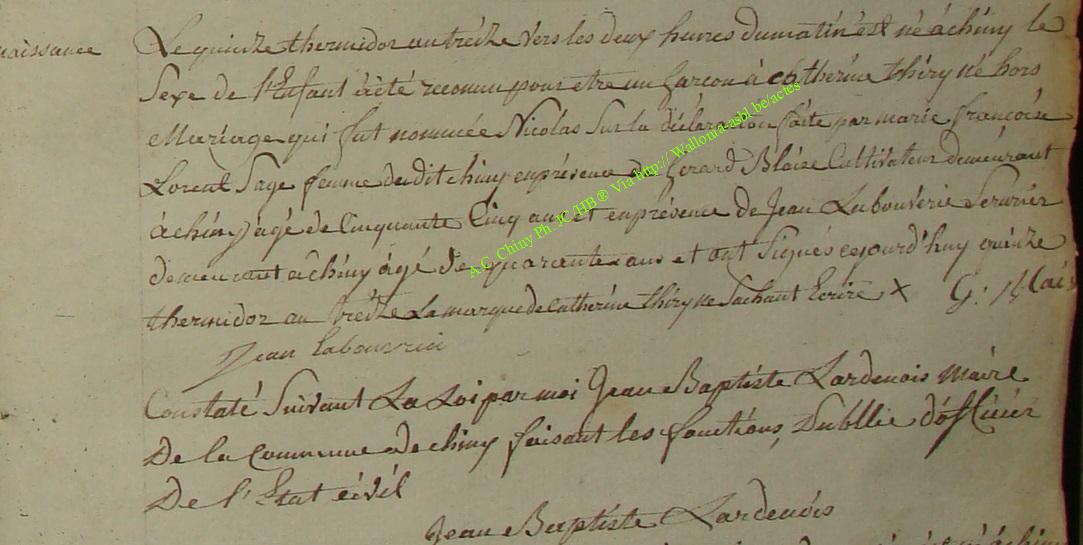 naissance
Le quinze thermidor an treize vers les deux heures du matin est né à chiny le
Sexe de l'Enfant à été reconnu pour etre un garçon à catherine thiry né hors
Mariage qui fut nommée Nicolas Sur la déclaration faite par marie françoise
Lorent Sage femme dudit chiny en présence de Gerard Blaise Cultivateur demeurant
à chiny agé de Cinquante Cinq ans et en présence de Jean Labouverie Serurier
demeurant à chiny agé de quarante ans et ont Signés cejourd'huy quinze
thermidor an treize La marque de Catherine thiry ne Sachant Ecrire X G: Blais
Jean Labouverie
Constaté Suivant La Loi par moi Jean Baptiste Lardenois Maire
De la Commune de chiny faisant les fonctions Dubllie d'officier
De l'Etat civil
Jean Baptiste Lardenois
A.C. Chiny Ph. JC/HB ® Via http://Wallonia-asbl.be/actes